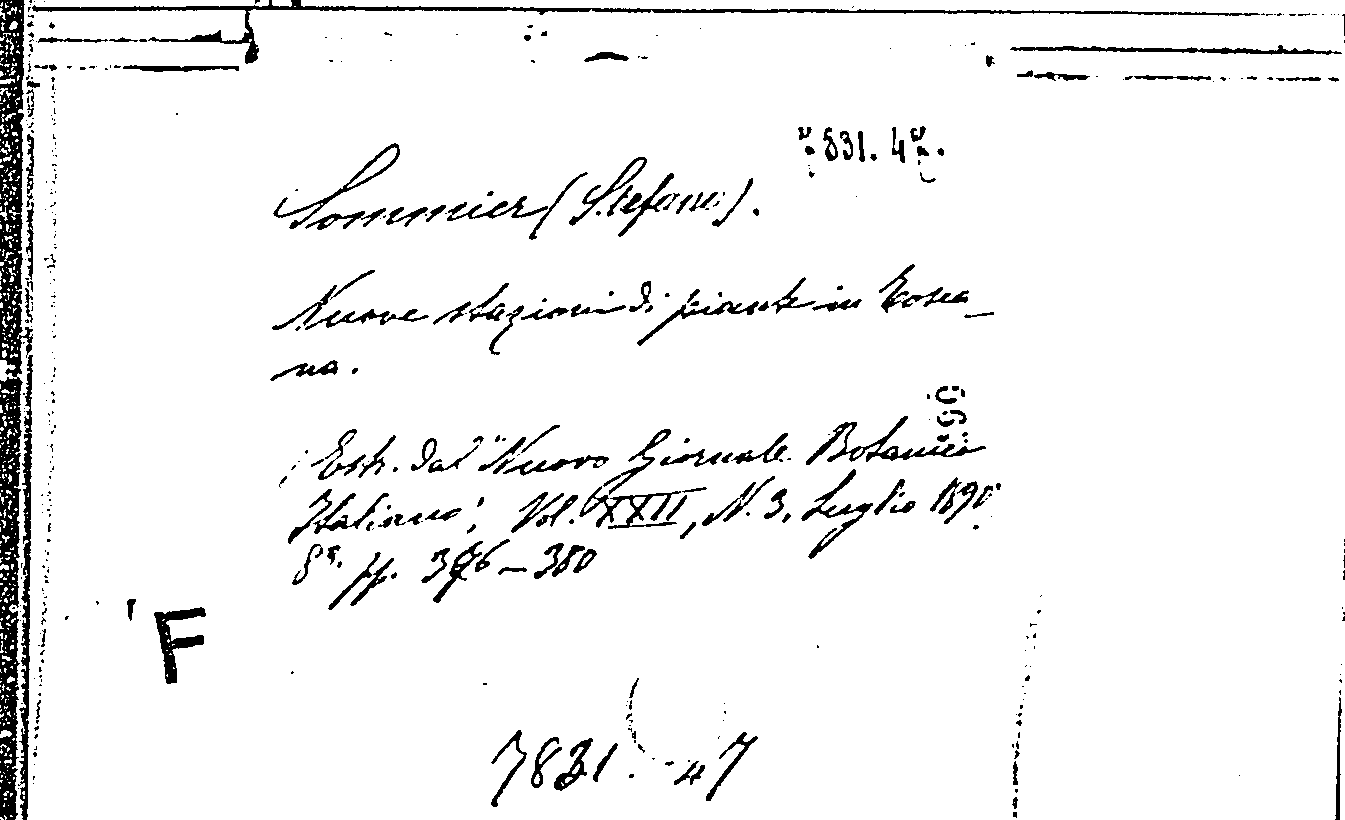 7831. 47.
Sommier (Stefano).
Nuove stazioni di piante in Tosca_
na.
99
Estr. dal "Nuovo Giornale Botanico
Italiano", Vol. XXII, N. 3, Luglio 1890
8º. pp. 376-380
F
7831. 47